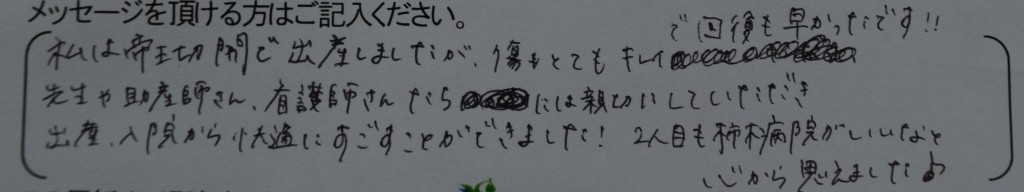 メッセージを頂ける方はご記入ください。
私は帝王切開で出産しましたが、傷もとてもキレイで回復も早かったです!!
先生や助産師さん、看護師さんたちには親切にしていただき
出産、入院から快適にすごすことができました! 2人目も柿木病院がいいなと
心から思えました♪